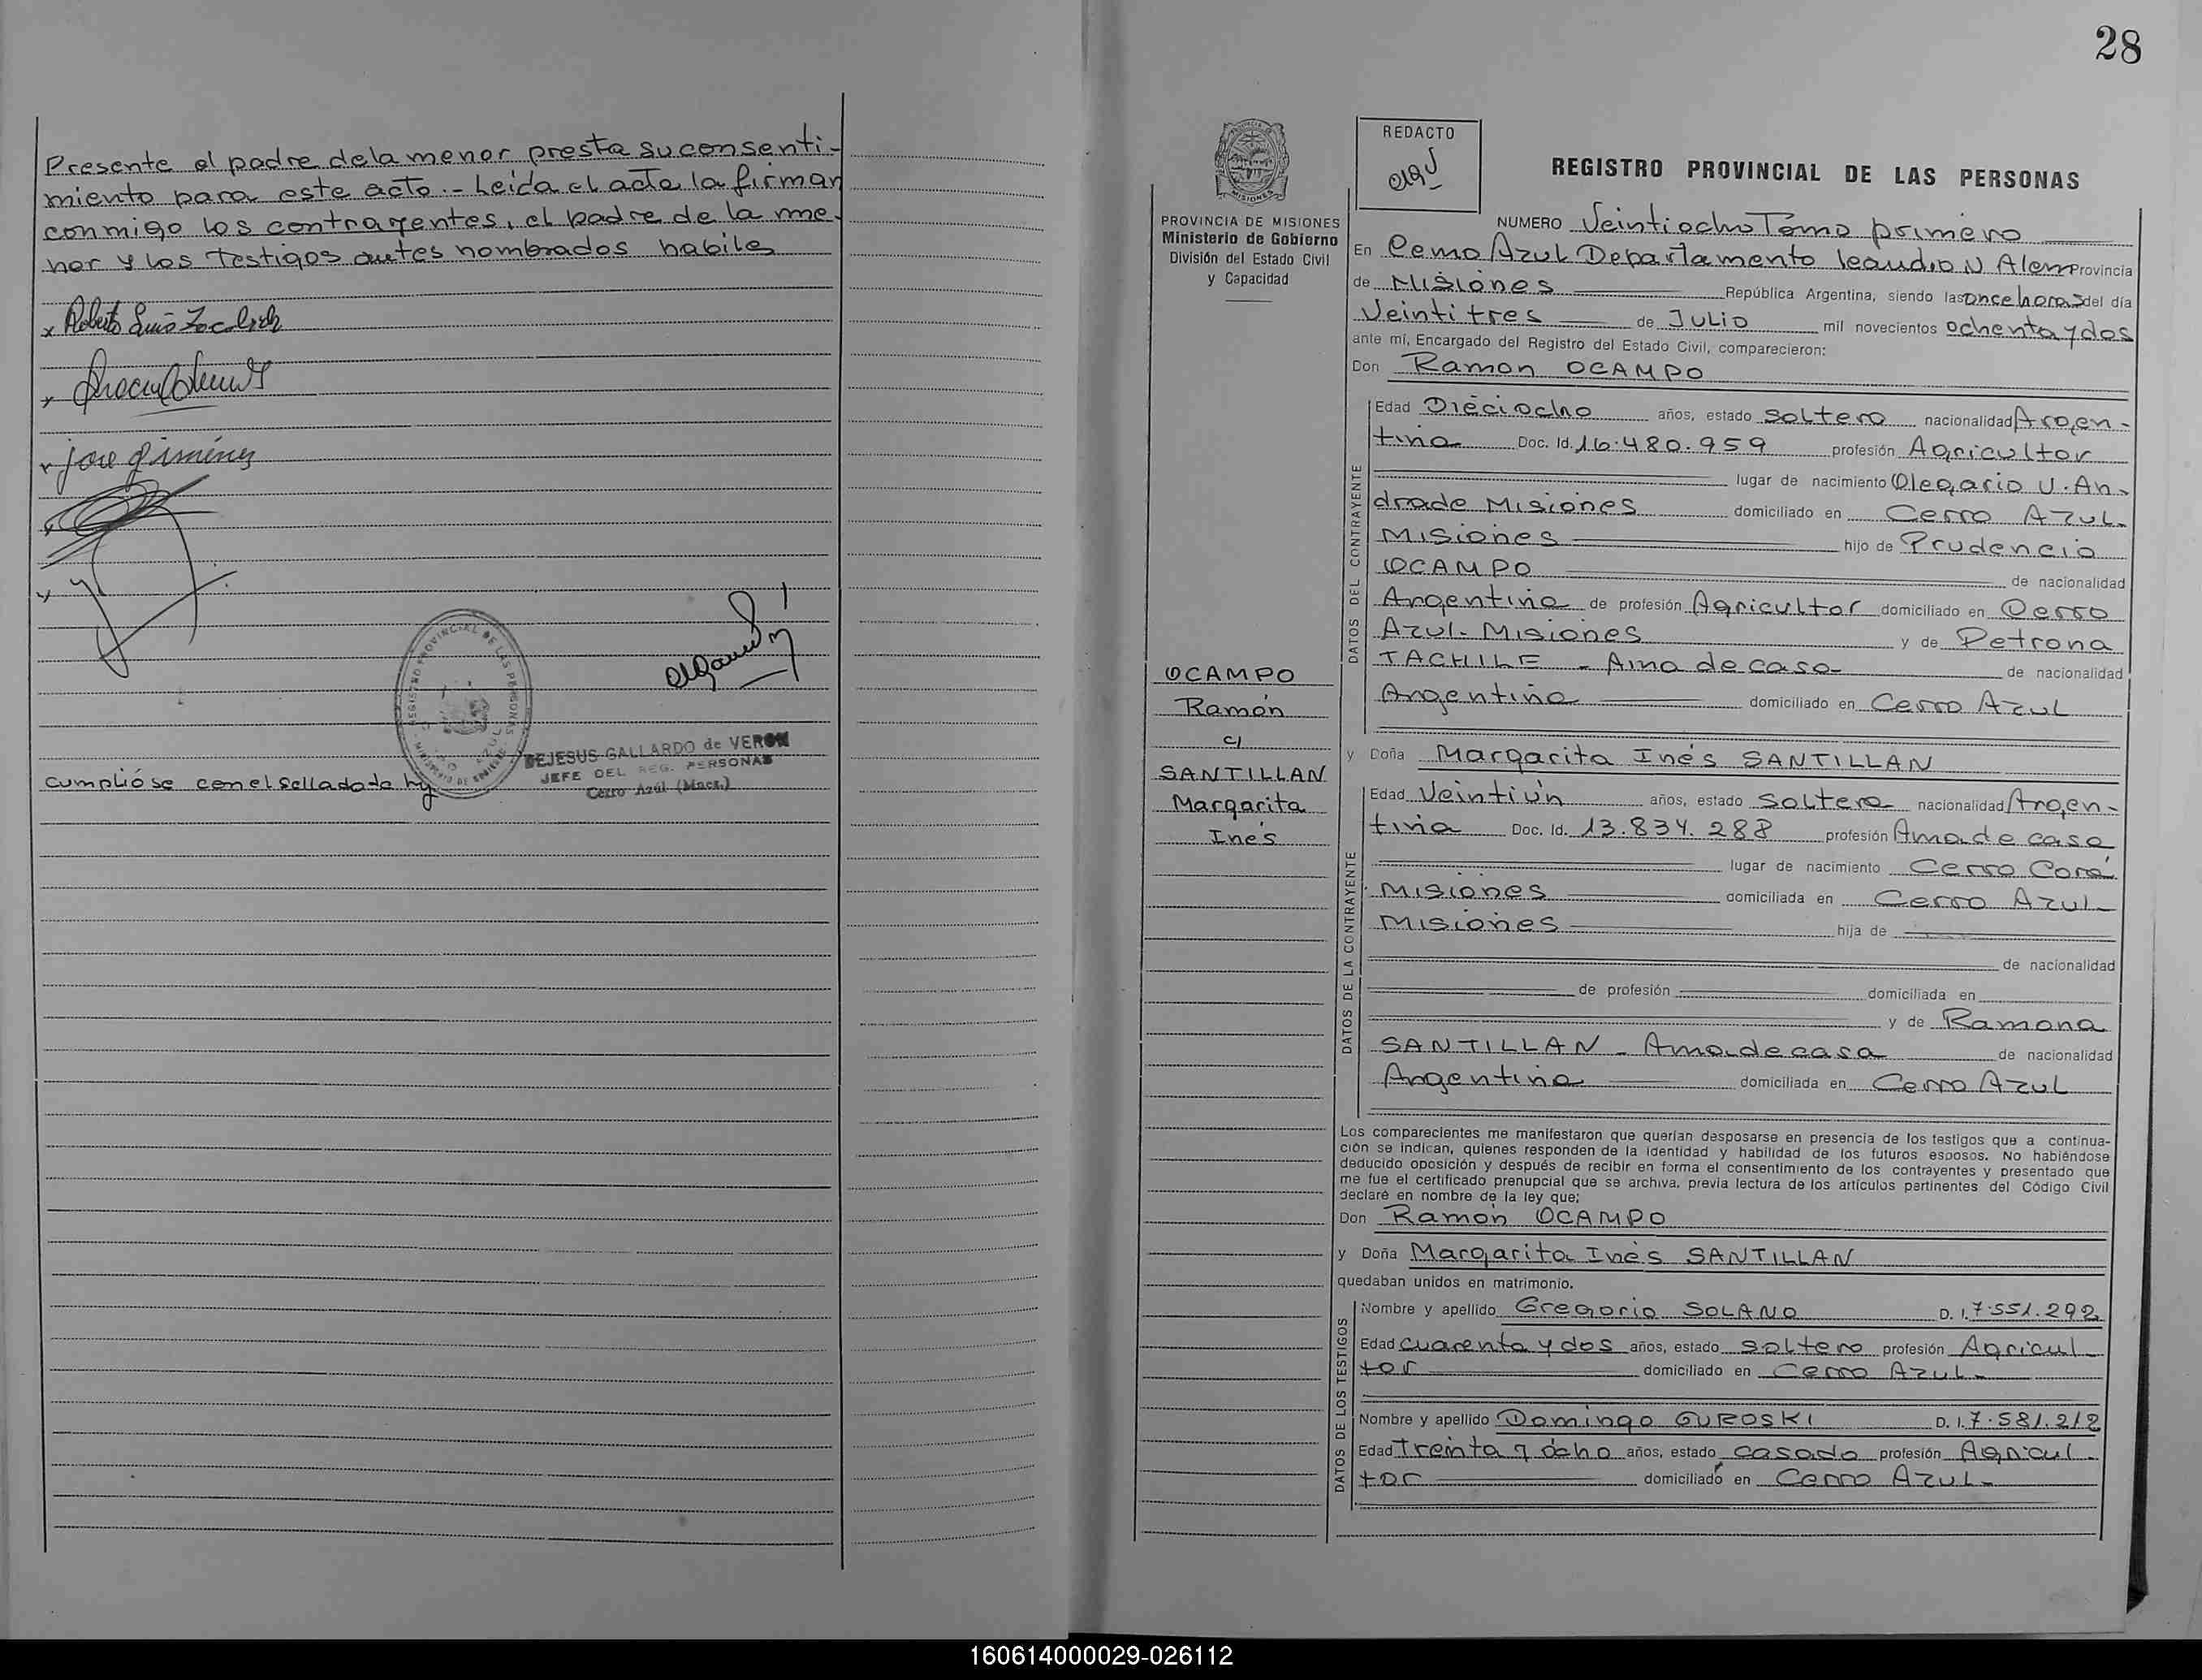 Presente el padre dela menor presta su consenti-
miento para este acto.- Leida el acta la firman
conmigo los contrayentes, el padre de la me-
nor y los testigos antes nombrados habiles
jose giménez
REGISTRO PROVINCIAL DE LAS PERSONAS
DEJESUS GALLARDO de VERON
JEFE DEL REG. PERSONAS
Cerro Azúl (Mnes.)
Cumplióse con el sellado de ley
28
PROVINCIA DE MISIONES
Ministerio de Gobierno
División del Estado Civil
y Capacidad
OCAMPO
Ramón
c/
SANTILLAN
Margarita
Inés
REDACTO
REGISTRO PROVINCIAL DE LAS PERSONAS
NUMERO Veintiocho Tomo primero
En Cerro Azul Departamento leandro N Alem Provincia
de Misiones República Argentina, siendo las once horas del día
Veintitres de Julio mil novecientos ochenta y dos
ante mí, Encargado del Registro del Estado Civil, comparecieron:
Don Ramon OCAMPO
DATOS DEL CONTRAYENTE
Edad Dieciocho años, estado soltero nacionalidad Argen-
tina Doc. Id. 16.480.959 profesión Agricultor
lugar de nacimiento Olegario V. An-
drade Misiones domiciliado en Cerro Azul-
Misiones hijo de Prudencio
OCAMPO de nacionalidad
Argentina de profesión Agricultor domiciliado en Cerro
Azul- Misiones y de Petrona
TACHILE - Ama de casa- de nacionalidad
Argentina domiciliado en Cerro Azul
y Doña Margarita Inés SANTILLAN
DATOS DE LA CONTRAYENTE
Edad Veintiún años, estado soltera nacionalidad Argen-
tina Doc. Id. 13.834.288 profesión Ama de casa
lugar de nacimiento Cerro Corá
Misiones domiciliada en Cerro Azul-
Misiones hija de
de nacionalidad
de profesión domiciliada en
y de Ramona
SANTILLAN - Ama de casa de nacionalidad
Argentina domiciliada en Cerro Azul
Los comparecientes me manifestaron que querían desposarse en presencia de los testigos que a continua-
ción se indican, quienes responden de la identidad y habilidad de los futuros esposos. No habiéndose
deducido oposición y después de recibir en forma el consentimiento de los contrayentes y presentado que
me fue el certificado prenupcial que se archiva, previa lectura de los artículos pertinentes del Código Civil
declaré en nombre de la ley que;
Don Ramón OCAMPO
y Doña Margarita Inés SANTILLAN
quedaban unidos en matrimonio.
DATOS DE LOS TESTIGOS
Nombre y apellido Gregorio SOLANO D. I. 7.551.292
Edad cuarenta y dos años, estado soltero profesión Agricul-
tor domiciliado en Cerro Azul-
Nombre y apellido Domingo GUROSKI D. I. 7.581.212
Edad Treinta y ócho años, estado casado profesión Agricul-
tor domiciliado en Cerro Azul-
160614000029-026112